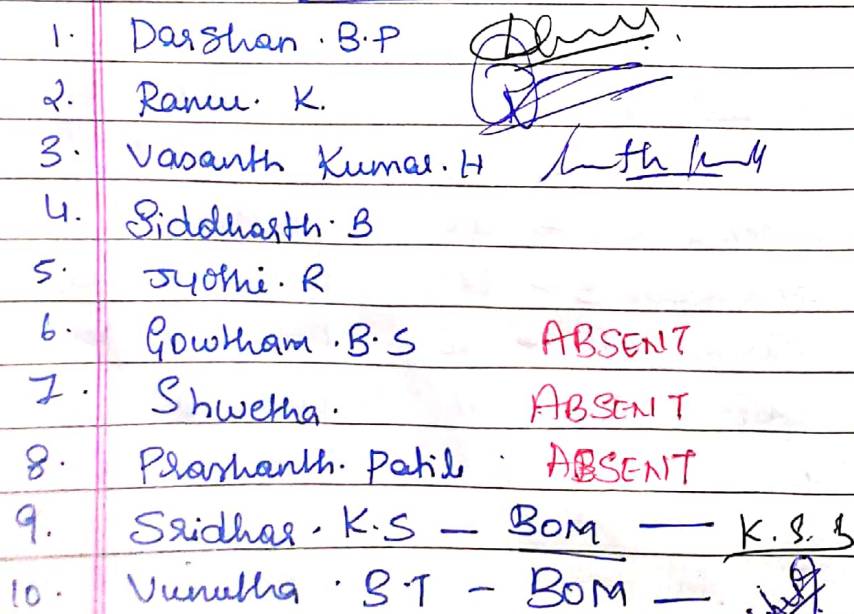 1. Darshan . B.P
2. Ranu. K.
3. Vasanth Kumar. H
4. Siddharth. B
5. Jyothi. R
6. Gowtham . B.S ABSENT
7. Shwetha. ABSENT
8. Prashanth. Patil. ABSENT
9. Sridhar. K.S — BOM — K.S.S
10. Vunutha . S.T - BOM —